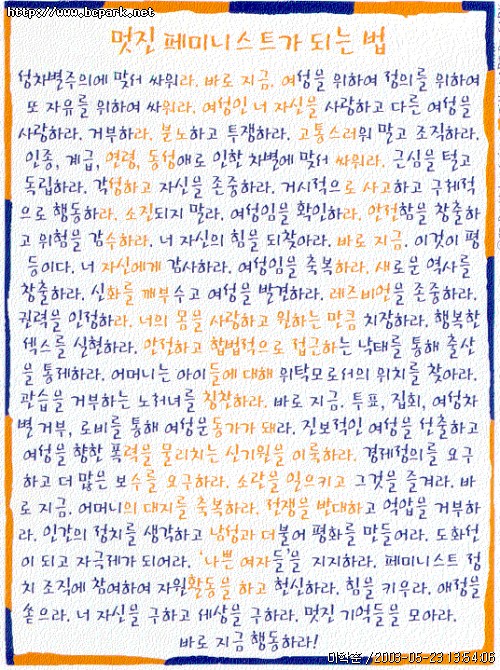 http://www.bcpark.net
멋진 페미니스트가 되는 법
성차별주의에 맞서 싸워라. 바로 지금. 여성을 위하여 정의를 위하여
또 자유를 위하여 싸워라. 여성인 너 자신을 사랑하고 다른 여성을
사랑하라. 거부하라. 분노하고 투쟁하라. 고통스러워 말고 조직하라.
인종, 계급, 연령, 동성애로 인한 차별에 맞서 싸워라. 근심을 털고
독립하라. 각성하고 자신을 존중하라. 거시적으로 사고하고 구체적
으로 행동하라. 소진되지 말라. 여성임을 확인하라. 안전함을 창출하
고 위험을 감수하라. 너 자신의 힘을 되찾아라. 바로 지금. 이것이 평
등이다. 너 자신에게 감사하라. 여성임을 축복하라. 새로운 역사를
창출하라. 신화를 깨부수고 여성을 발견하라. 레즈비언을 존중하라.
권력을 인정하라. 너의 몸을 사랑하고 원하는 만큼 치장하라. 행복한
섹스를 실현하라. 안전하고 합법적으로 접근하는 낙태를 통해 출산
을 통제하라. 어머니는 아이들에 대해 위탁모로서의 위치를 찾아라.
관습을 거부하는 노처녀를 칭찬하라. 바로 지금. 투표, 집회, 여성차
별 거부, 로비를 통해 여성운동가가 돼라. 진보적인 여성을 선출하고
여성을 향한 폭력을 물리치는 신기원을 이룩하라. 경제정의를 요구
하고 더 많은 보수를 요구하라. 소란을 일으키고 그것을 즐겨라. 바
로 지금. 어머니의 대지를 축복하라. 전쟁을 반대하고 억압을 거부하
라. 인간의 정치를 생각하고 남성과 더불어 평화를 만들어라. 도화선
이 되고 자극제가 되어라. '나쁜 여자들'을 지지하라. 페미니스트 정
치 조직에 참여하여 자원활동을 하고 헌신하라. 힘을 키우라. 애정을
쏟으라. 너 자신을 구하고 세상을 구하라. 멋진 기억들을 모아라.
바로 지금 행동하라!
/2003-05-23 13:54:06